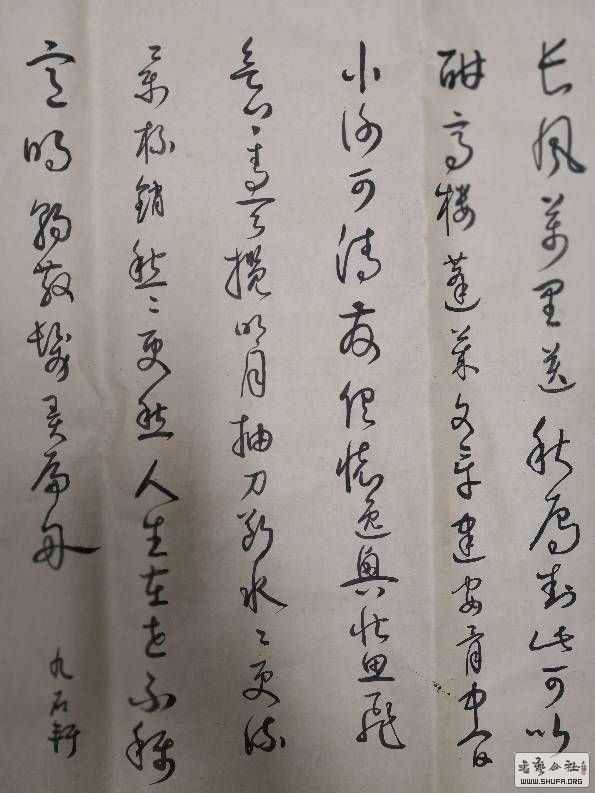 长风萬里送秋雁对此可以
酣高楼蓬莱文章建安骨中间
小谢可清发俱怀逸兴壮思飞
欲上青天揽明月抽刀断水〻更流
举杯销愁〻更愁人生在世不称
意明朝散发弄扁舟
九石轩
书艺公社
WWW.SHUFA.ORG